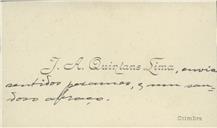 J. A. Quintans Lima, envia
sentidos pesames, e um sau-
doso abraço.
Coimbra